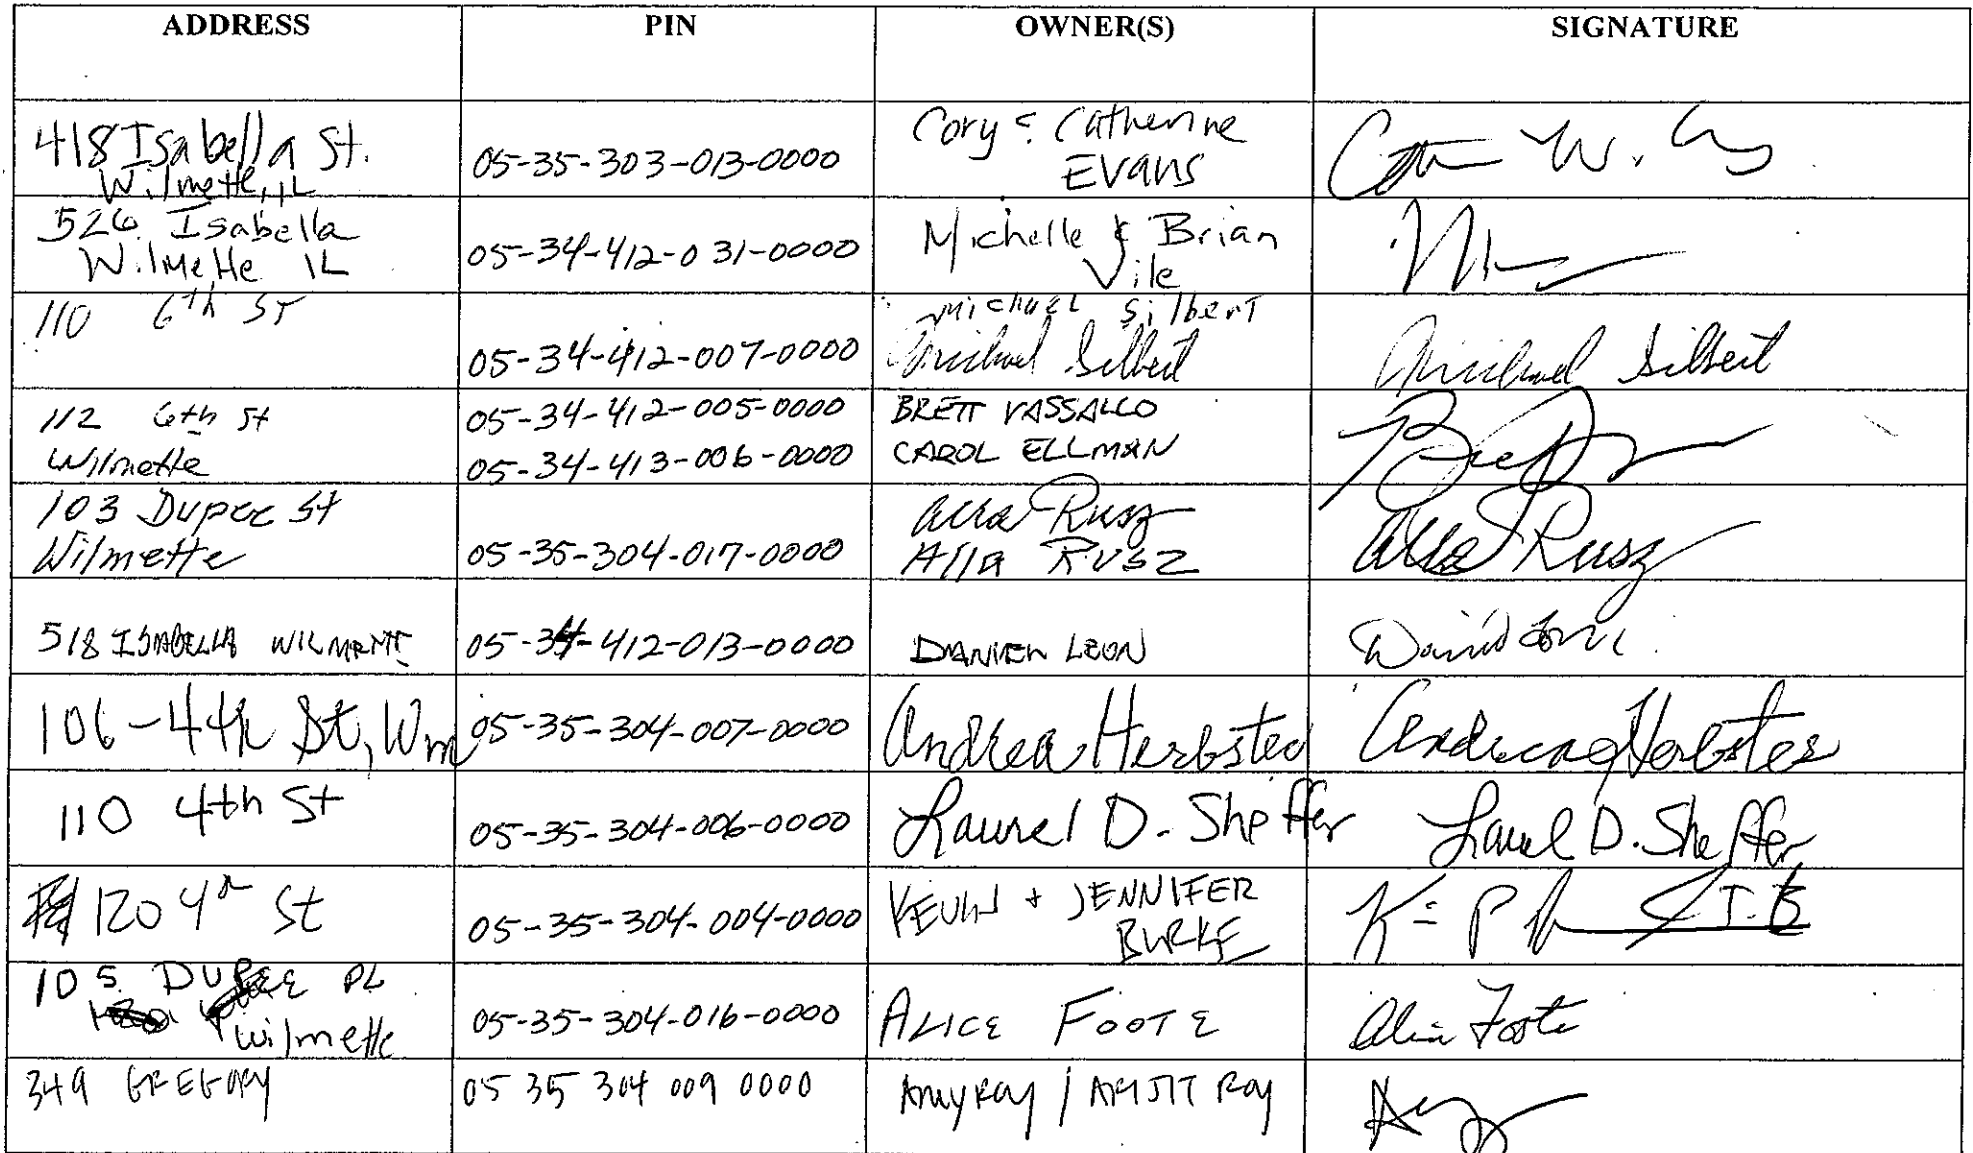 ADDRESS PIN OWNER(S) SIGNATURE
418 Isabella St.
Wilmette, IL
05-35-303-013-0000
Cory & Catherine
EVANS
526 Isabella
Wilmette IL
05-34-412-031-0000
Michelle & Brian
Vile
110 6th ST
05-34-412-007-0000
Michael Silbert
Michael Silbert
Michael Silbert
112 6th St
Wilmette
05-34-412-005-0000
05-34-413-006-0000
BRETT VASSALLO
CAROL ELLMAN
103 Dupee St
Wilmette
05-35-304-017-0000
Alla Rusz
Alla RUSZ
Alla Rusz
518 ISABELLA
05-34-412-013-0000
LEON
106-4th St, Wm
05-35-304-007-0000
Andrea Herbster
Andrea Herbster
110 4th St
05-35-304-006-0000
Laurel D. Sheffer
Laurel D. Sheffer
120 4th St
05-35-304-004-0000
KEVIN + JENNIFER
BURKE
105 DUPEE PL
Wilmette
05-35-304-016-0000
ALICE FOOTE
Alice Foote
349 GREGORY
05 35 304 009 0000
Amy Ray / Ray